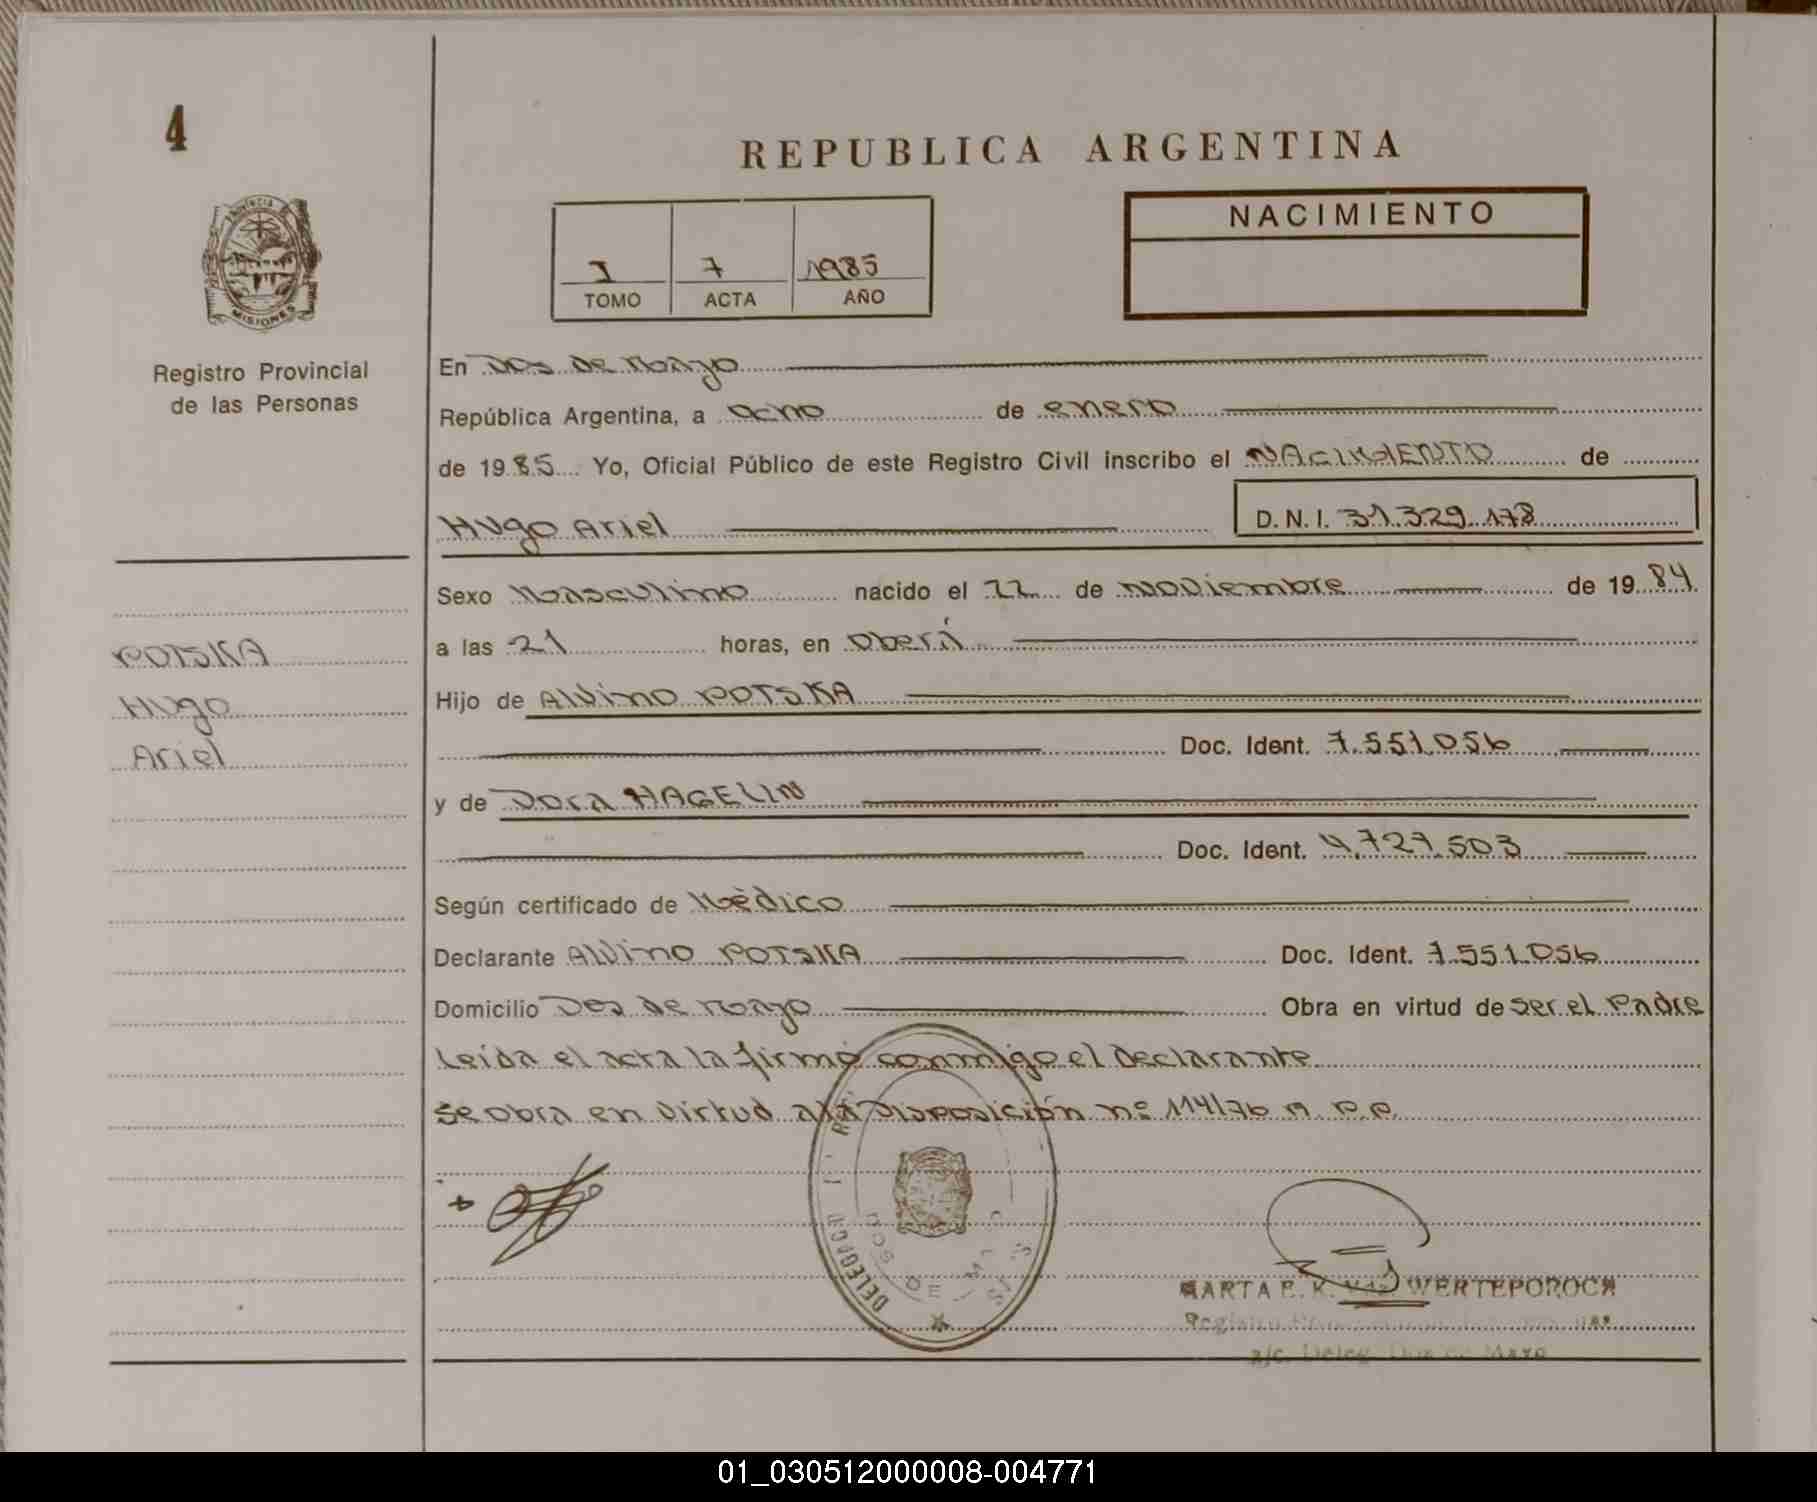 4
REPUBLICA ARGENTINA
PROVINCIA DE
MISIONES
Registro Provincial
de las Personas
I 7 1985
TOMO ACTA AÑO
NACIMIENTO
En Dos de Mayo
República Argentina, a ocho de enero
de 1985 Yo, Oficial Público de este Registro Civil inscribo el NACIMIENTO de
Hugo Ariel D.N.I. 31.329.178
Sexo Masculino nacido el 22 de noviembre de 1984
a las 21 horas, en Oberá
Hijo de Alvino POTSKA
Doc. Ident. 7.551.056
y de Dora HAGELIN
Doc. Ident. 4.727.503
Según certificado de Médico
Declarante Alvino POTSKA Doc. Ident. 7.551.056
Domicilio Dos de Mayo Obra en virtud de ser el Padre
Leída el acta la firmó conmigo el declarante
se obra en virtud a la Disposición nº 114/76 R.P.P.
POTSKA
Hugo
Ariel
DOS DE
MARTA E. K. WERTEPOROCH
a/c. Deleg. Dos de Mayo
01_030512000008-004771